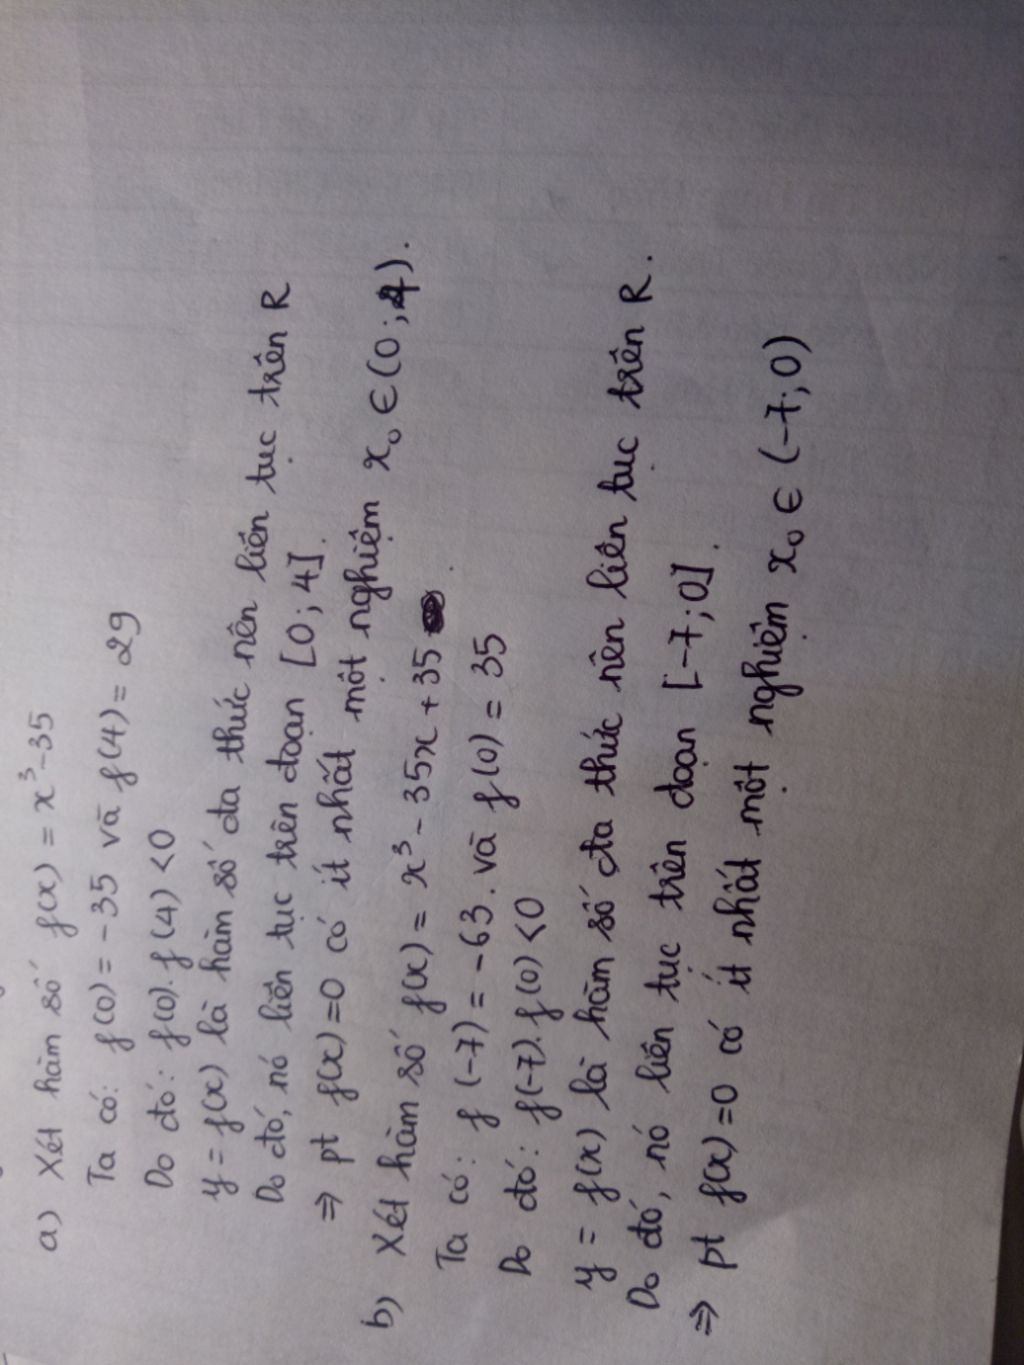 a) Xét hàm số f(x) = x³-35
Ta có: f(0) = -35 và f(4) = 29
Do đó: f(0).f(4) <0
y = f(x) là hàm số đa thức nên liên tục trên R
Do đó, nó liên tục trên đoạn [0; 4].
⇒ pt f(x)=0 có ít nhất một nghiệm x₀ ∈ (0; 4).
b) Xét hàm số f(x) = x³ - 35x + 35.
Ta có: f(-7) = -63. và f(0) = 35
Do đó: f(-7).f(0) <0
y = f(x) là hàm số đa thức nên liên tục trên R.
Do đó, nó liên tục trên đoạn [-7; 0].
⇒ pt f(x)=0 có ít nhất một nghiệm x₀ ∈ (-7; 0)